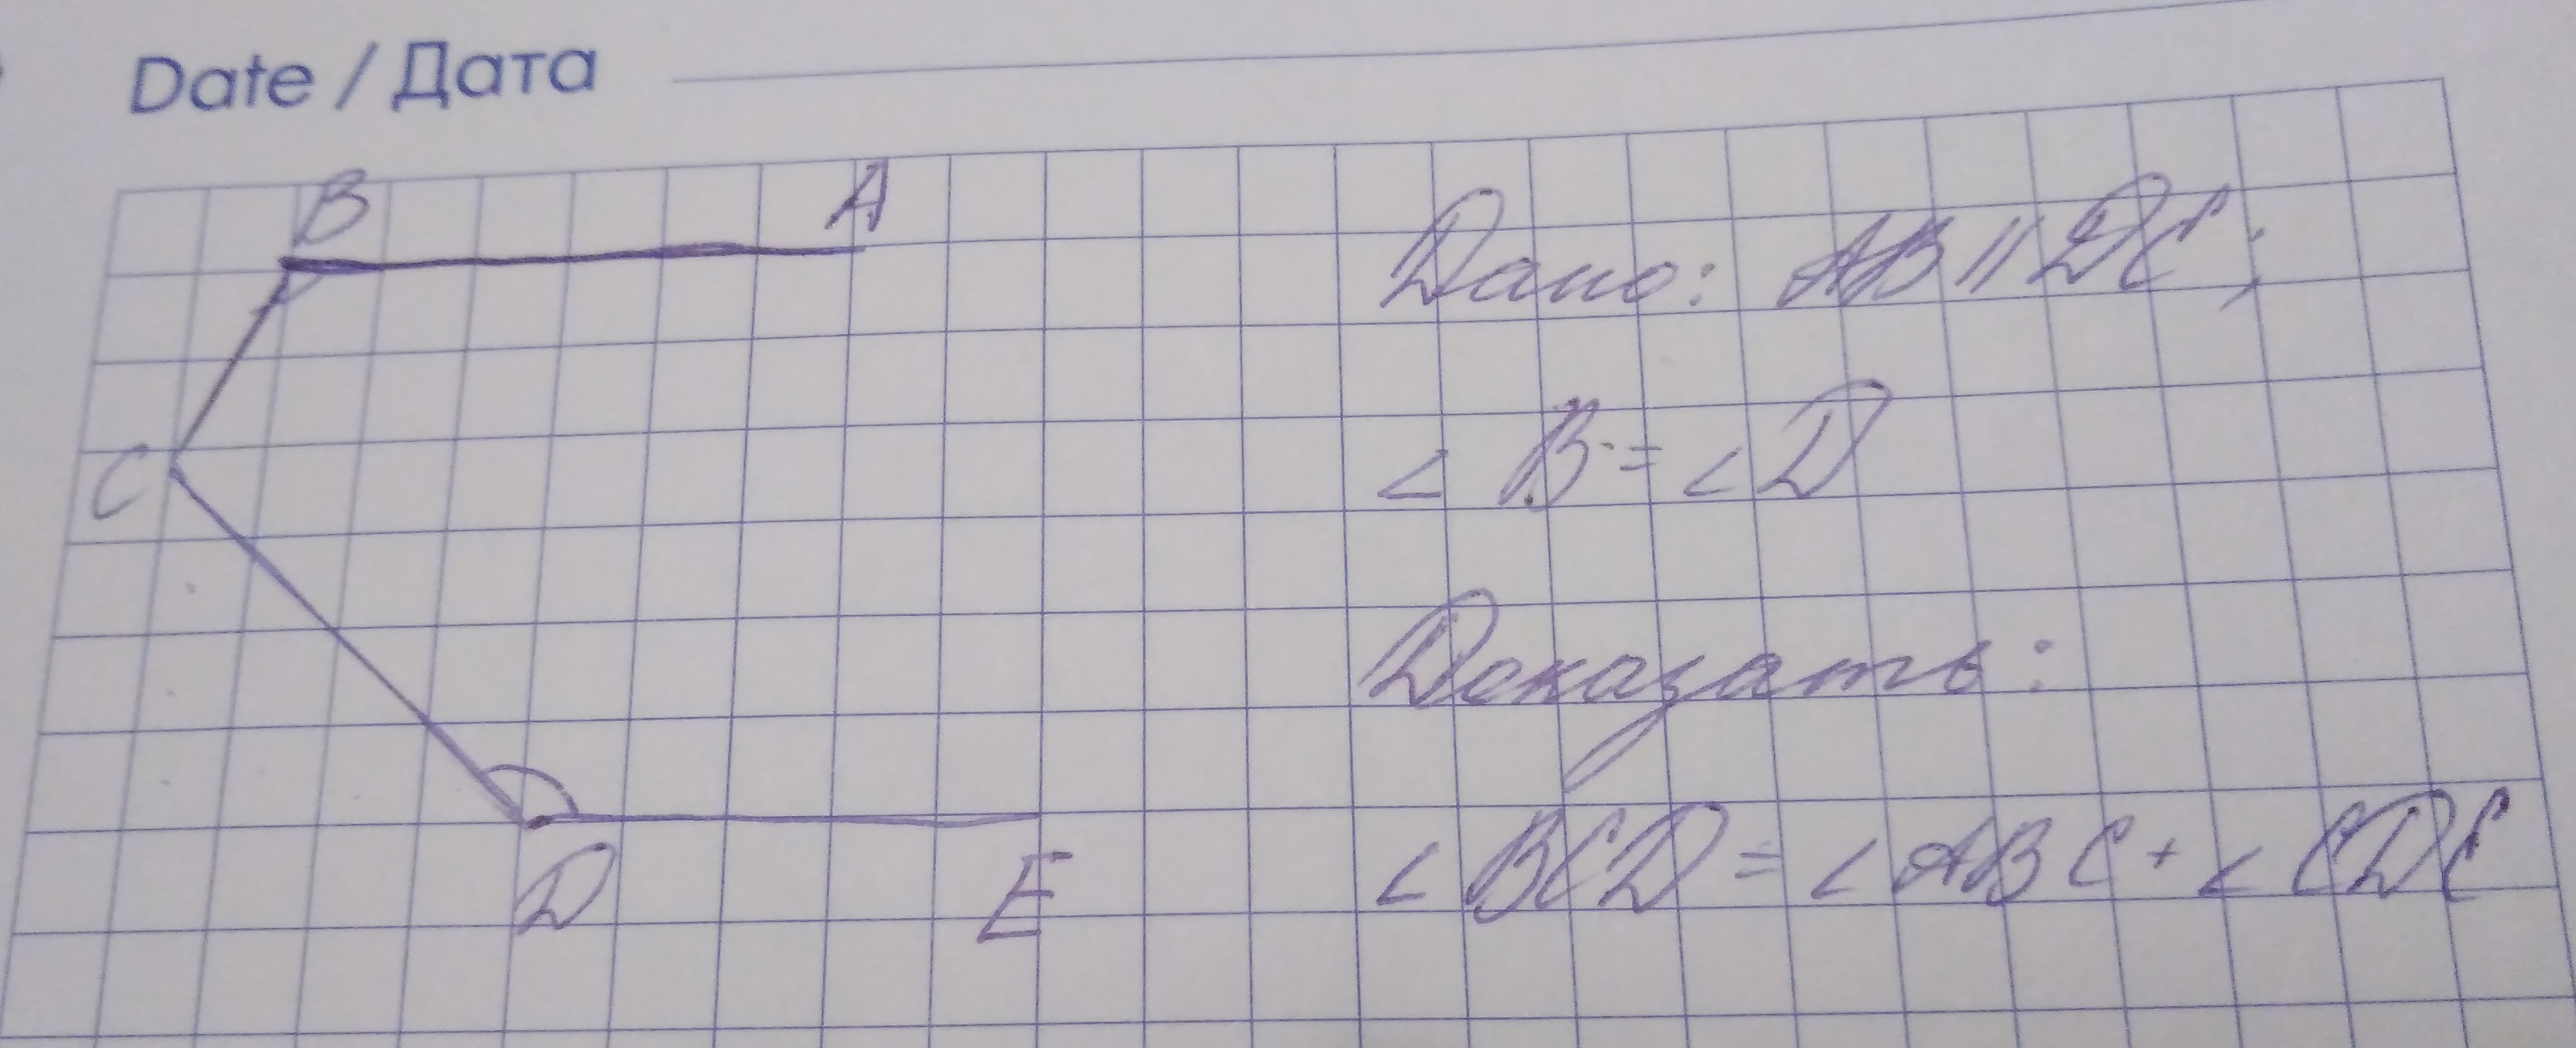 Date / Дата
B A
Дано: AB || DE;
C
∠ B = ∠ D
Доказать:
D E
∠ BCD = ∠ ABC + ∠ CDE